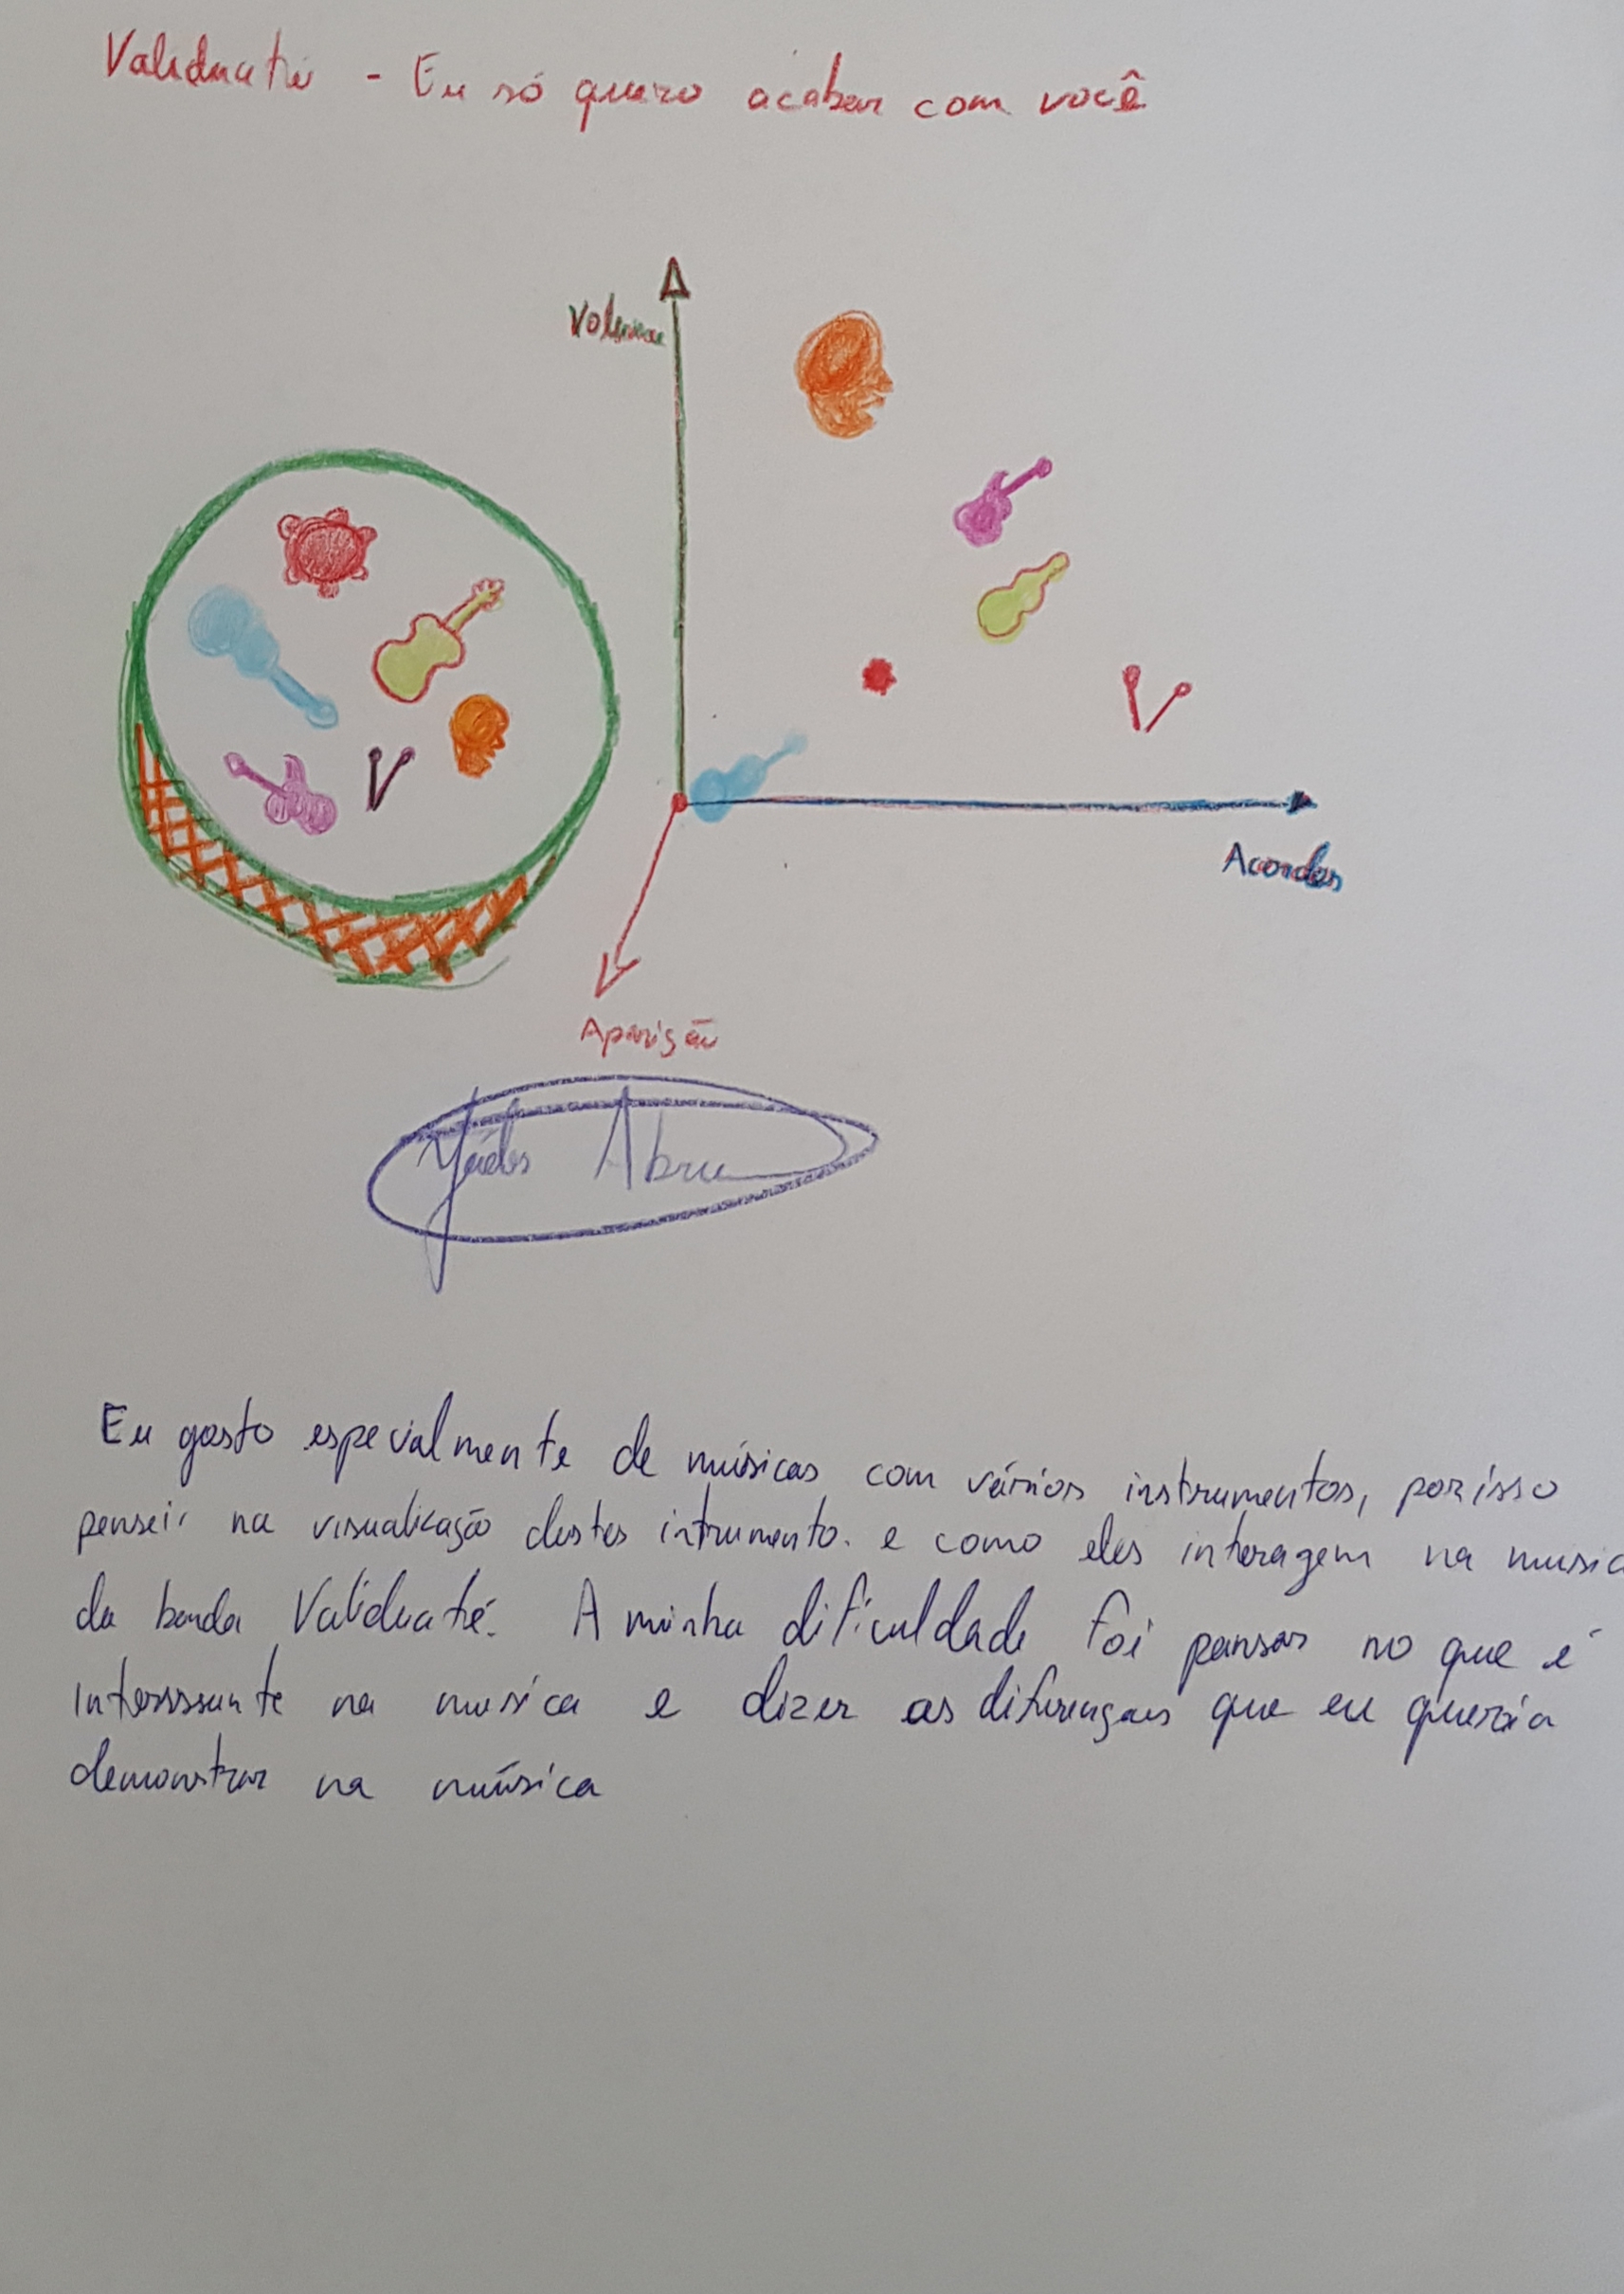 Validuaté - Eu só quero acabar com você
Volume
Acordes
Aparição
Abreu
Eu gosto especialmente de músicas com vários instrumentos, por isso
pensei na visualização destes intrumento. e como eles interagem na music
da banda Validuaté. A minha dificuldade foi pensar no que é
interessante na musica e dizer as diferenças que eu queria
demonstrar na música